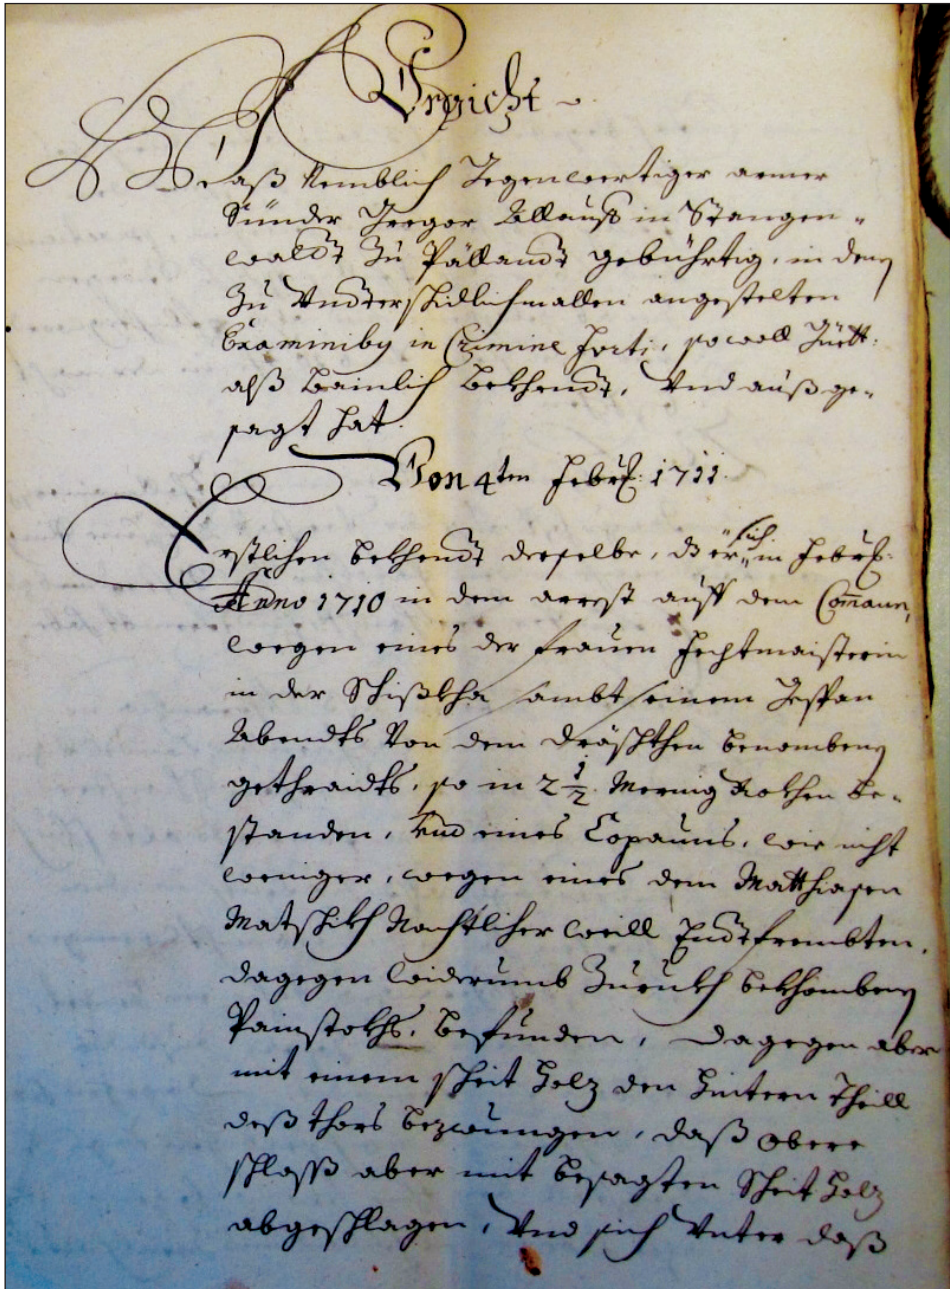 Vrgicht
Waß Nemblich Gegenwertiger armer
Sünder Gregor Allauß in Stangen-
waldt Zu Pöllandt gebührtig, in denen
Zu Vnderschidlichmallen angestelten
Examinibus in Crimine furti, sowoll Güett:
alß Painlich bekhendt, Vnd außge-
sagt hat.
Von 4ten Febr: 1711.
Erstlichen bekhendt derselbe, dz er sich in Febr:
Anno 1710 in dem arrest auff dem
wegen eines der frauen
in der sambt seinem
Abendts Von dem benomben
gethraidts, so in 2 1/2 Mernig Rokhen be-
standen, Vnd eines Copauns, wie nicht
weniger, wegen eines dem Matthiasen
Matschikh Nächtlicher weill Endtfrembten,
dagegen widerumb Zurukh bekhomben
Painstokhs, befunden, dagegen aber
mit einem scheit Holz den hintern Theill
deß thors bezwungen, daß obere
schloß aber mit besagten Scheit Holz
abgeschlagen, Vnd sich Vnter daß